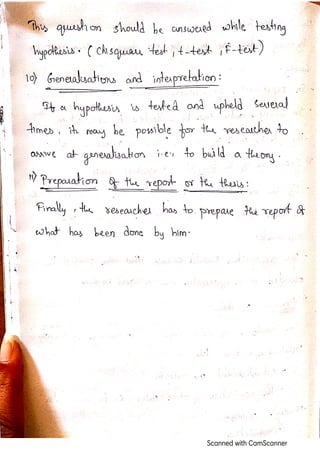 This question should be answered while testing
hypothesis. (chisquare test, t-test, F-test)
10) Generalisations and interpretation:
If a hypothesis is tested and upheld several
times, it may be possible for the researcher to
arrive at generalisation i.e., to build a theory.
11) Preparation of the report or the thesis:
Finally, the researcher has to prepare the report of
what has been done by him.
Scanned with CamScanner